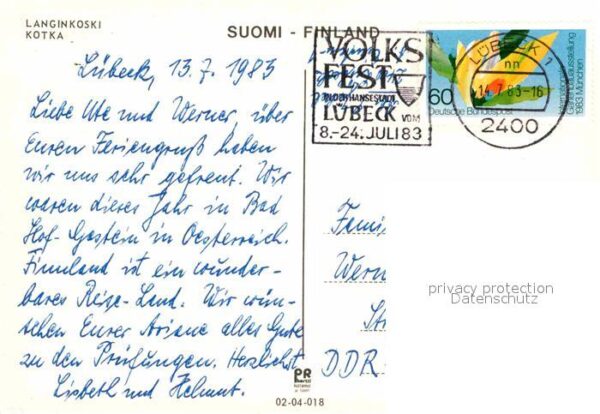 LANGINKOSKI
KOTKA
SUOMI - FINLAND
Lübeck, 13.7.1983
Liebe Ute und Werner, über
Euren Feriengruß haben
wir uns sehr gefreut. Wir
waren dieses Jahr in Bad
Hof-Gastein in Oesterreich.
Finnland ist ein wunder-
bares Reise-Land. Wir wün-
schen Eurer Ariane alles Gute
zu den Prüfungen. Herzlichst
Lisbeth und Helmut.
VOLKS
FEST
IN DER HANSESTADT
LÜBECK VOM
8.-24. JULI 83
LÜBECK 1
nn
14.7.83-16
2400
60
Deutsche Bundespost
Internationale Gartenbauausstellung
1983 München
Fami
Wern
St
DDR
privacy protection
Datenschutz
PR
02-04-018